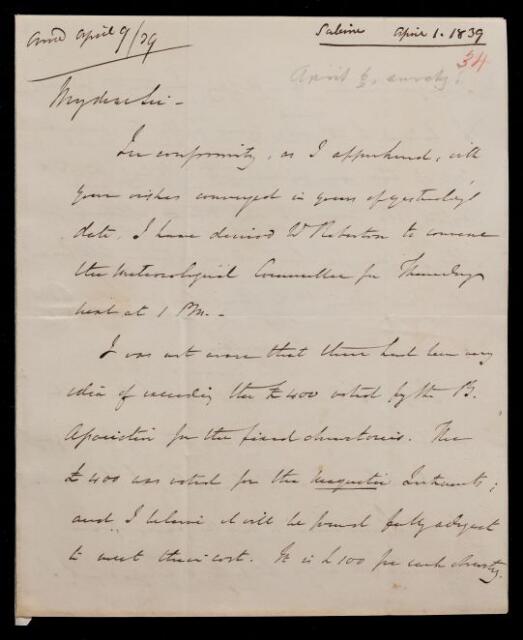 And April 9/39
Sabine April 1. 1839
34
April 6, surely!
My dear Sir -
In conformity, as I apprehend, with
your wishes conveyed in yours of yesterday's
date, I have desired Mr Roberton to convene
the Meteorological Committee for Thursday
next at 1 P.M. -
I was not aware that there had been any
idea of exceeding the £400 voted by the B.
Association for the fixed observatories. The
£400 was voted for the magnetic Instruments;
and I believe it will be found fully adequate
to meet their cost. It is £100 for each observy.